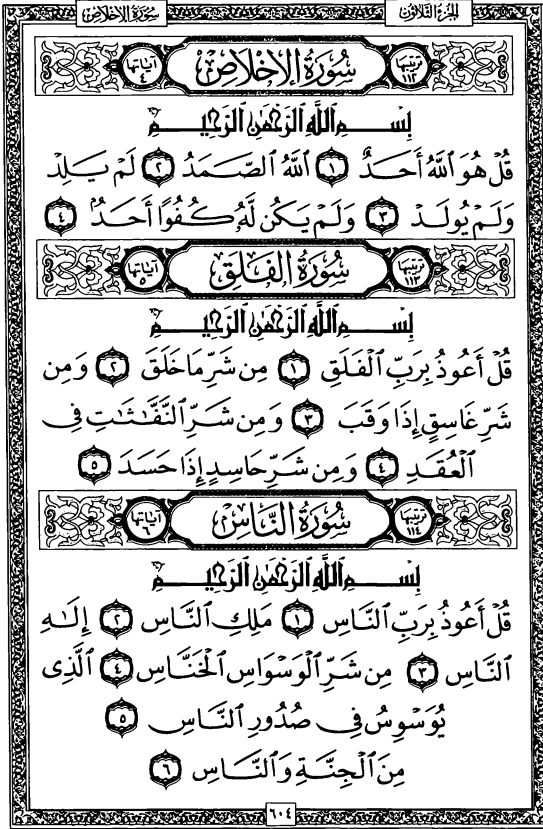 الجزء الثلاثون سورة الإخلاص
ترتيبها ١١٢ سُورَةُ الإِخْلَاصِ آياتها ٤
بِسْمِ ٱللَّهِ ٱلرَّحْمَٰنِ ٱلرَّحِيمِ
قُلْ هُوَ ٱللَّهُ أَحَدٌ ١ ٱللَّهُ ٱلصَّمَدُ ٢ لَمْ يَلِدْ
وَلَمْ يُولَدْ ٣ وَلَمْ يَكُن لَّهُۥ كُفُوًا أَحَدٌۢ ٤
ترتيبها ١١٣ سُورَةُ الْفَلَقِ آياتها ٥
بِسْمِ ٱللَّهِ ٱلرَّحْمَٰنِ ٱلرَّحِيمِ
قُلْ أَعُوذُ بِرَبِّ ٱلْفَلَقِ ١ مِن شَرِّ مَا خَلَقَ ٢ وَمِن
شَرِّ غَاسِقٍ إِذَا وَقَبَ ٣ وَمِن شَرِّ ٱلنَّفَّٰثَٰتِ فِى
ٱلْعُقَدِ ٤ وَمِن شَرِّ حَاسِدٍ إِذَا حَسَدَ ٥
ترتيبها ١١٤ سُورَةُ النَّاسِ آياتها ٦
بِسْمِ ٱللَّهِ ٱلرَّحْمَٰنِ ٱلرَّحِيمِ
قُلْ أَعُوذُ بِرَبِّ ٱلنَّاسِ ١ مَلِكِ ٱلنَّاسِ ٢ إِلَٰهِ
ٱلنَّاسِ ٣ مِن شَرِّ ٱلْوَسْوَاسِ ٱلْخَنَّاسِ ٤ ٱلَّذِى
يُوَسْوِسُ فِى صُدُورِ ٱلنَّاسِ ٥
مِنَ ٱلْجِنَّةِ وَٱلنَّاسِ ٦
٦٠٤